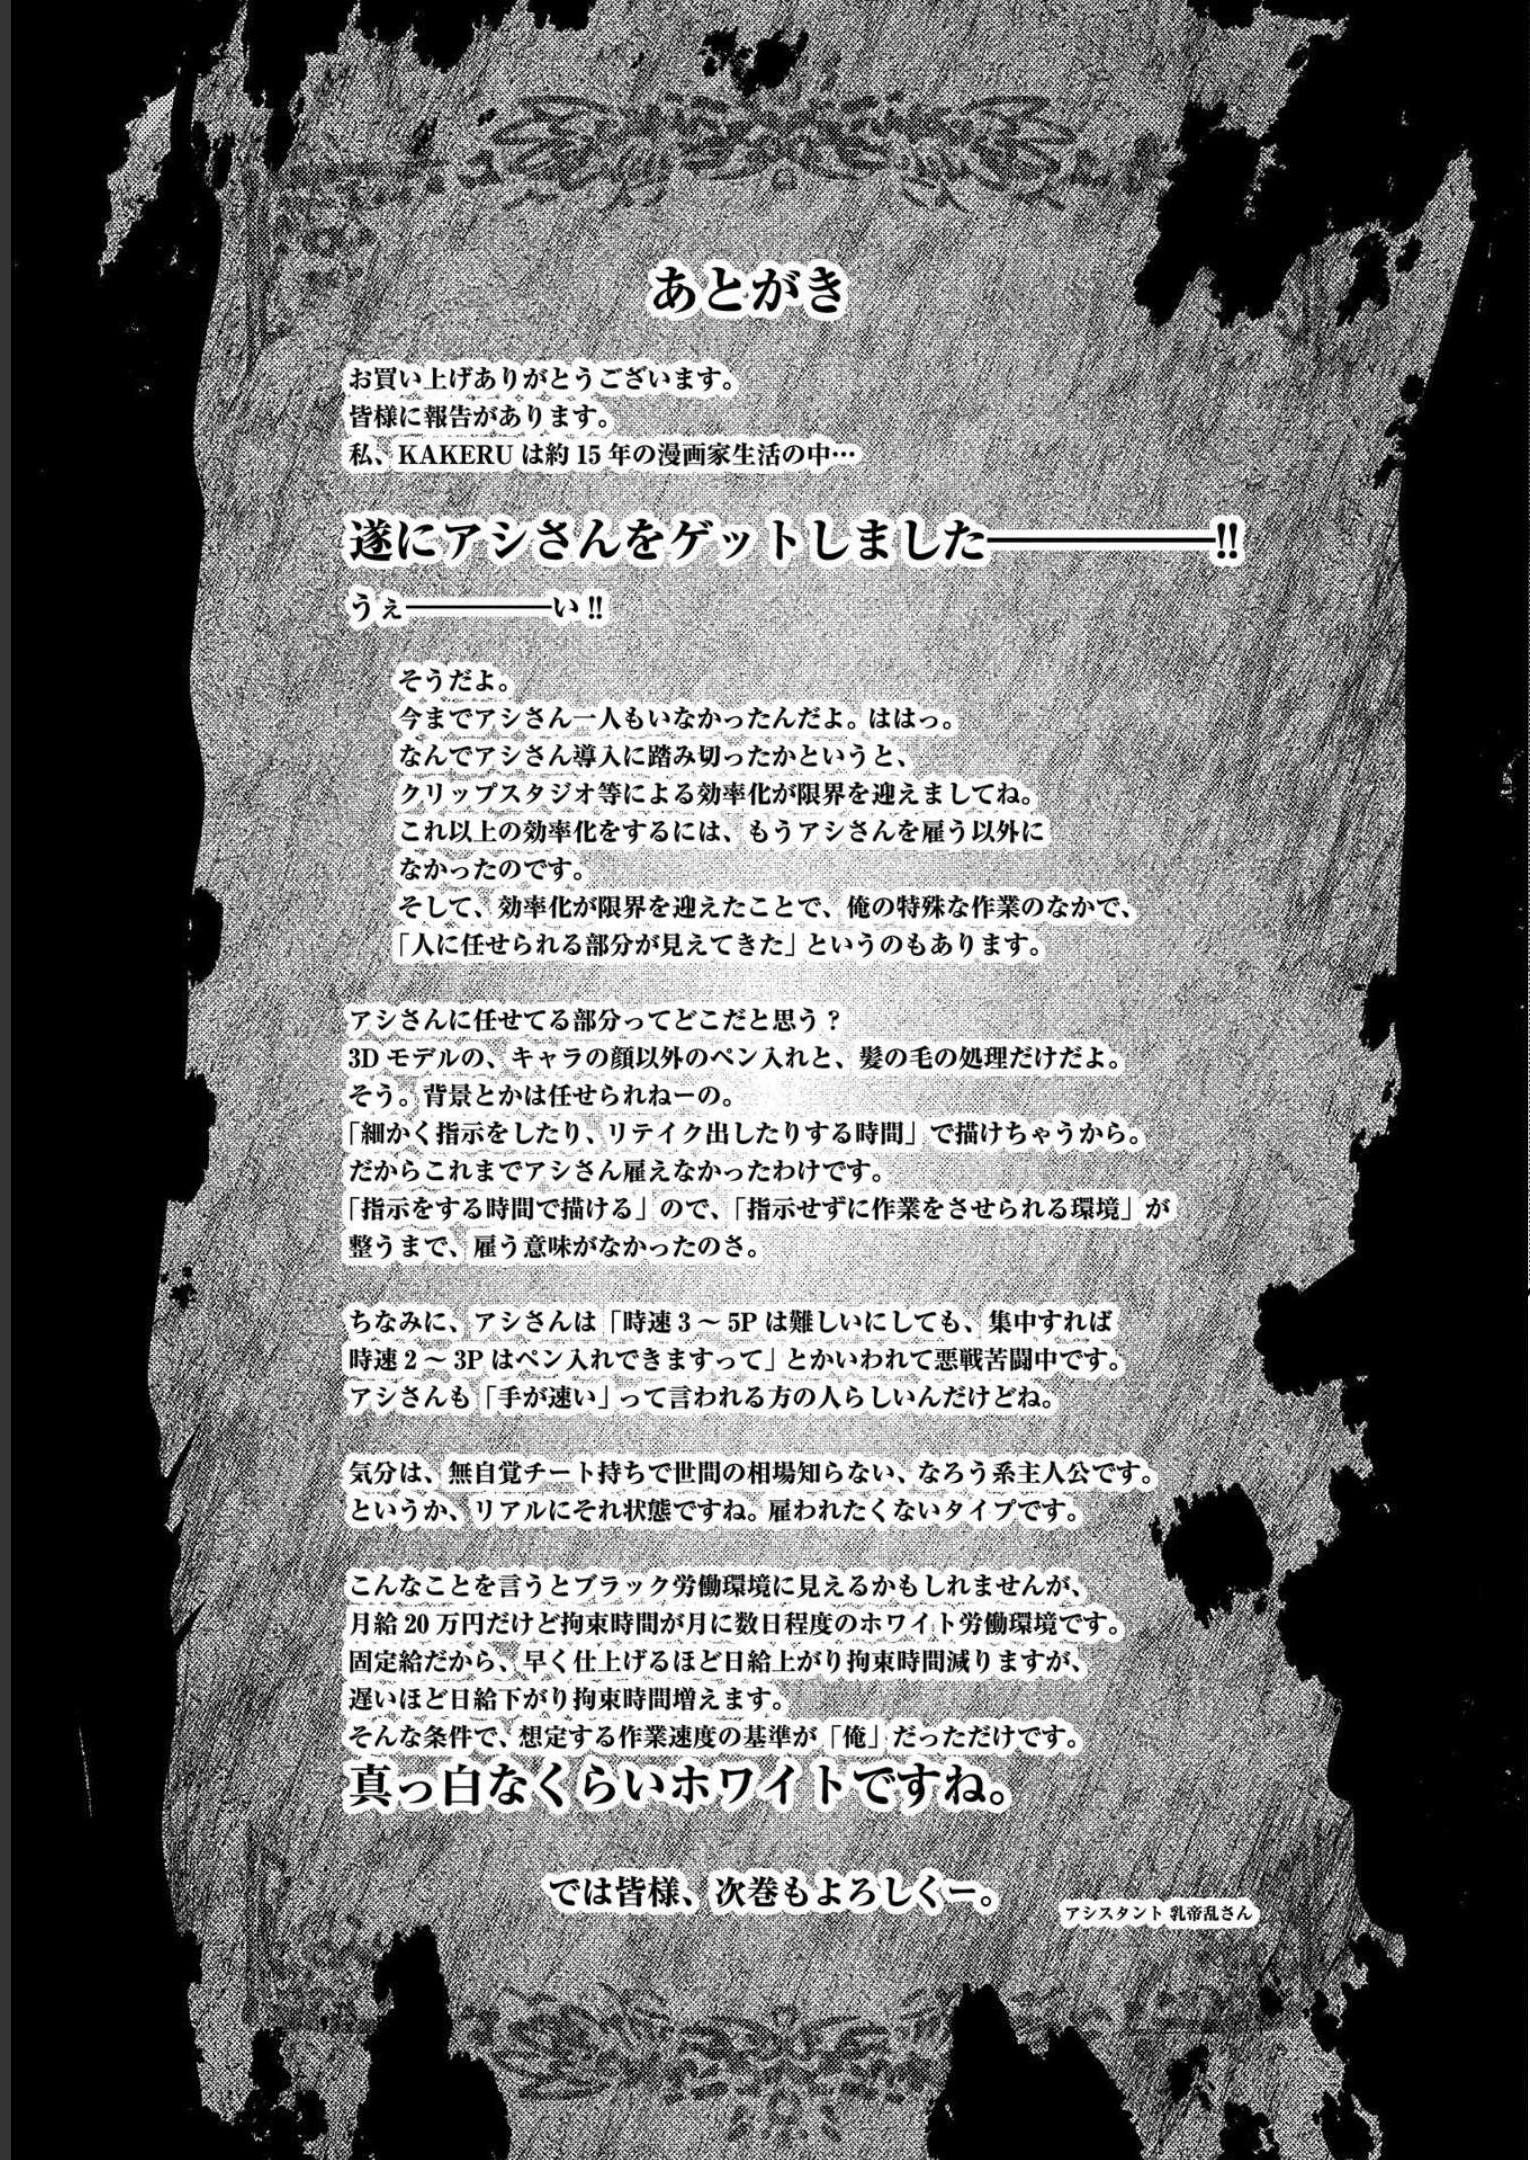 あとがき
お買い上げありがとうございます。
皆様に報告があります。
私、KAKERU は約 15 年の漫画家生活の中…
遂にアシさんをゲットしました――――――!!
うぇ―――――い !!
そうだよ。
今までアシさん一人もいなかったんだよ。ははっ。
なんでアシさん導入に踏み切ったかというと、
クリップスタジオ等による効率化が限界を迎えましてね。
これ以上の効率化をするには、もうアシさんを雇う以外に
なかったのです。
そして、効率化が限界を迎えたことで、俺の特殊な作業のなかで、
「人に任せられる部分が見えてきた」というのもあります。
アシさんに任せてる部分ってどこだと思う？
3D モデルの、キャラの顔以外のペン入れと、髪の毛の処理だけだよ。
そう。背景とかは任せられねーの。
「細かく指示をしたり、リテイク出したりする時間」で描けちゃうから。
だからこれまでアシさん雇えなかったわけです。
「指示をする時間で描ける」ので、「指示せずに作業をさせられる環境」が
整うまで、雇う意味がなかったのさ。
ちなみに、アシさんは「時速 3 ～ 5P は難しいにしても、集中すれば
時速 2 ～ 3P はペン入れできますって」とかいわれて悪戦苦闘中です。
アシさんも「手が速い」って言われる方の人らしいんだけどね。
気分は、無自覚チート持ちで世間の相場知らない、なろう系主人公です。
というか、リアルにそれ状態ですね。雇われたくないタイプです。
こんなことを言うとブラック労働環境に見えるかもしれませんが、
月給 20 万円だけど拘束時間が月に数日程度のホワイト労働環境です。
固定給だから、早く仕上げるほど日給上がり拘束時間減りますが、
遅いほど日給下がり拘束時間増えます。
そんな条件で、想定する作業速度の基準が「俺」だっただけです。
真っ白なくらいホワイトですね。
では皆様、次巻もよろしくー。
アシスタント 乳帝乱さん